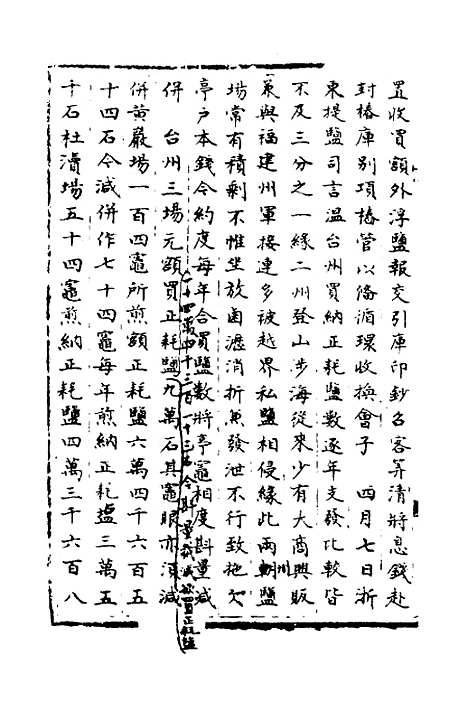 置收買額外浮鹽報交引庫印鈔召客筭清將息錢赴
封樁庫別項樁管以備循環收換會子　四月七日浙
東提鹽司言溫台州買納正耗鹽數逐年支發比較皆
不及三分之一緣二州登山涉海從來少有大商興販
兼與福建州軍接連多被越界私鹽相侵緣此兩州鹽
場常有積剩不惟坐放鹵瀝消折兼發泄不行致拖欠
亭户本錢今約度每年合買鹽數將亭竈相度斟量減
併　台州三場元額買正耗鹽九萬石其竈眼亦須減
十四萬四千三百一十三石今斟量裁減欲買正耗鹽
併黃巖場一百四竈所煎額正耗鹽六萬四千六百五
十四石今減併作七十四竈每年煎納正耗塩三萬五
千石杜瀆場五十四竈煎納正耗鹽四萬三千六百八